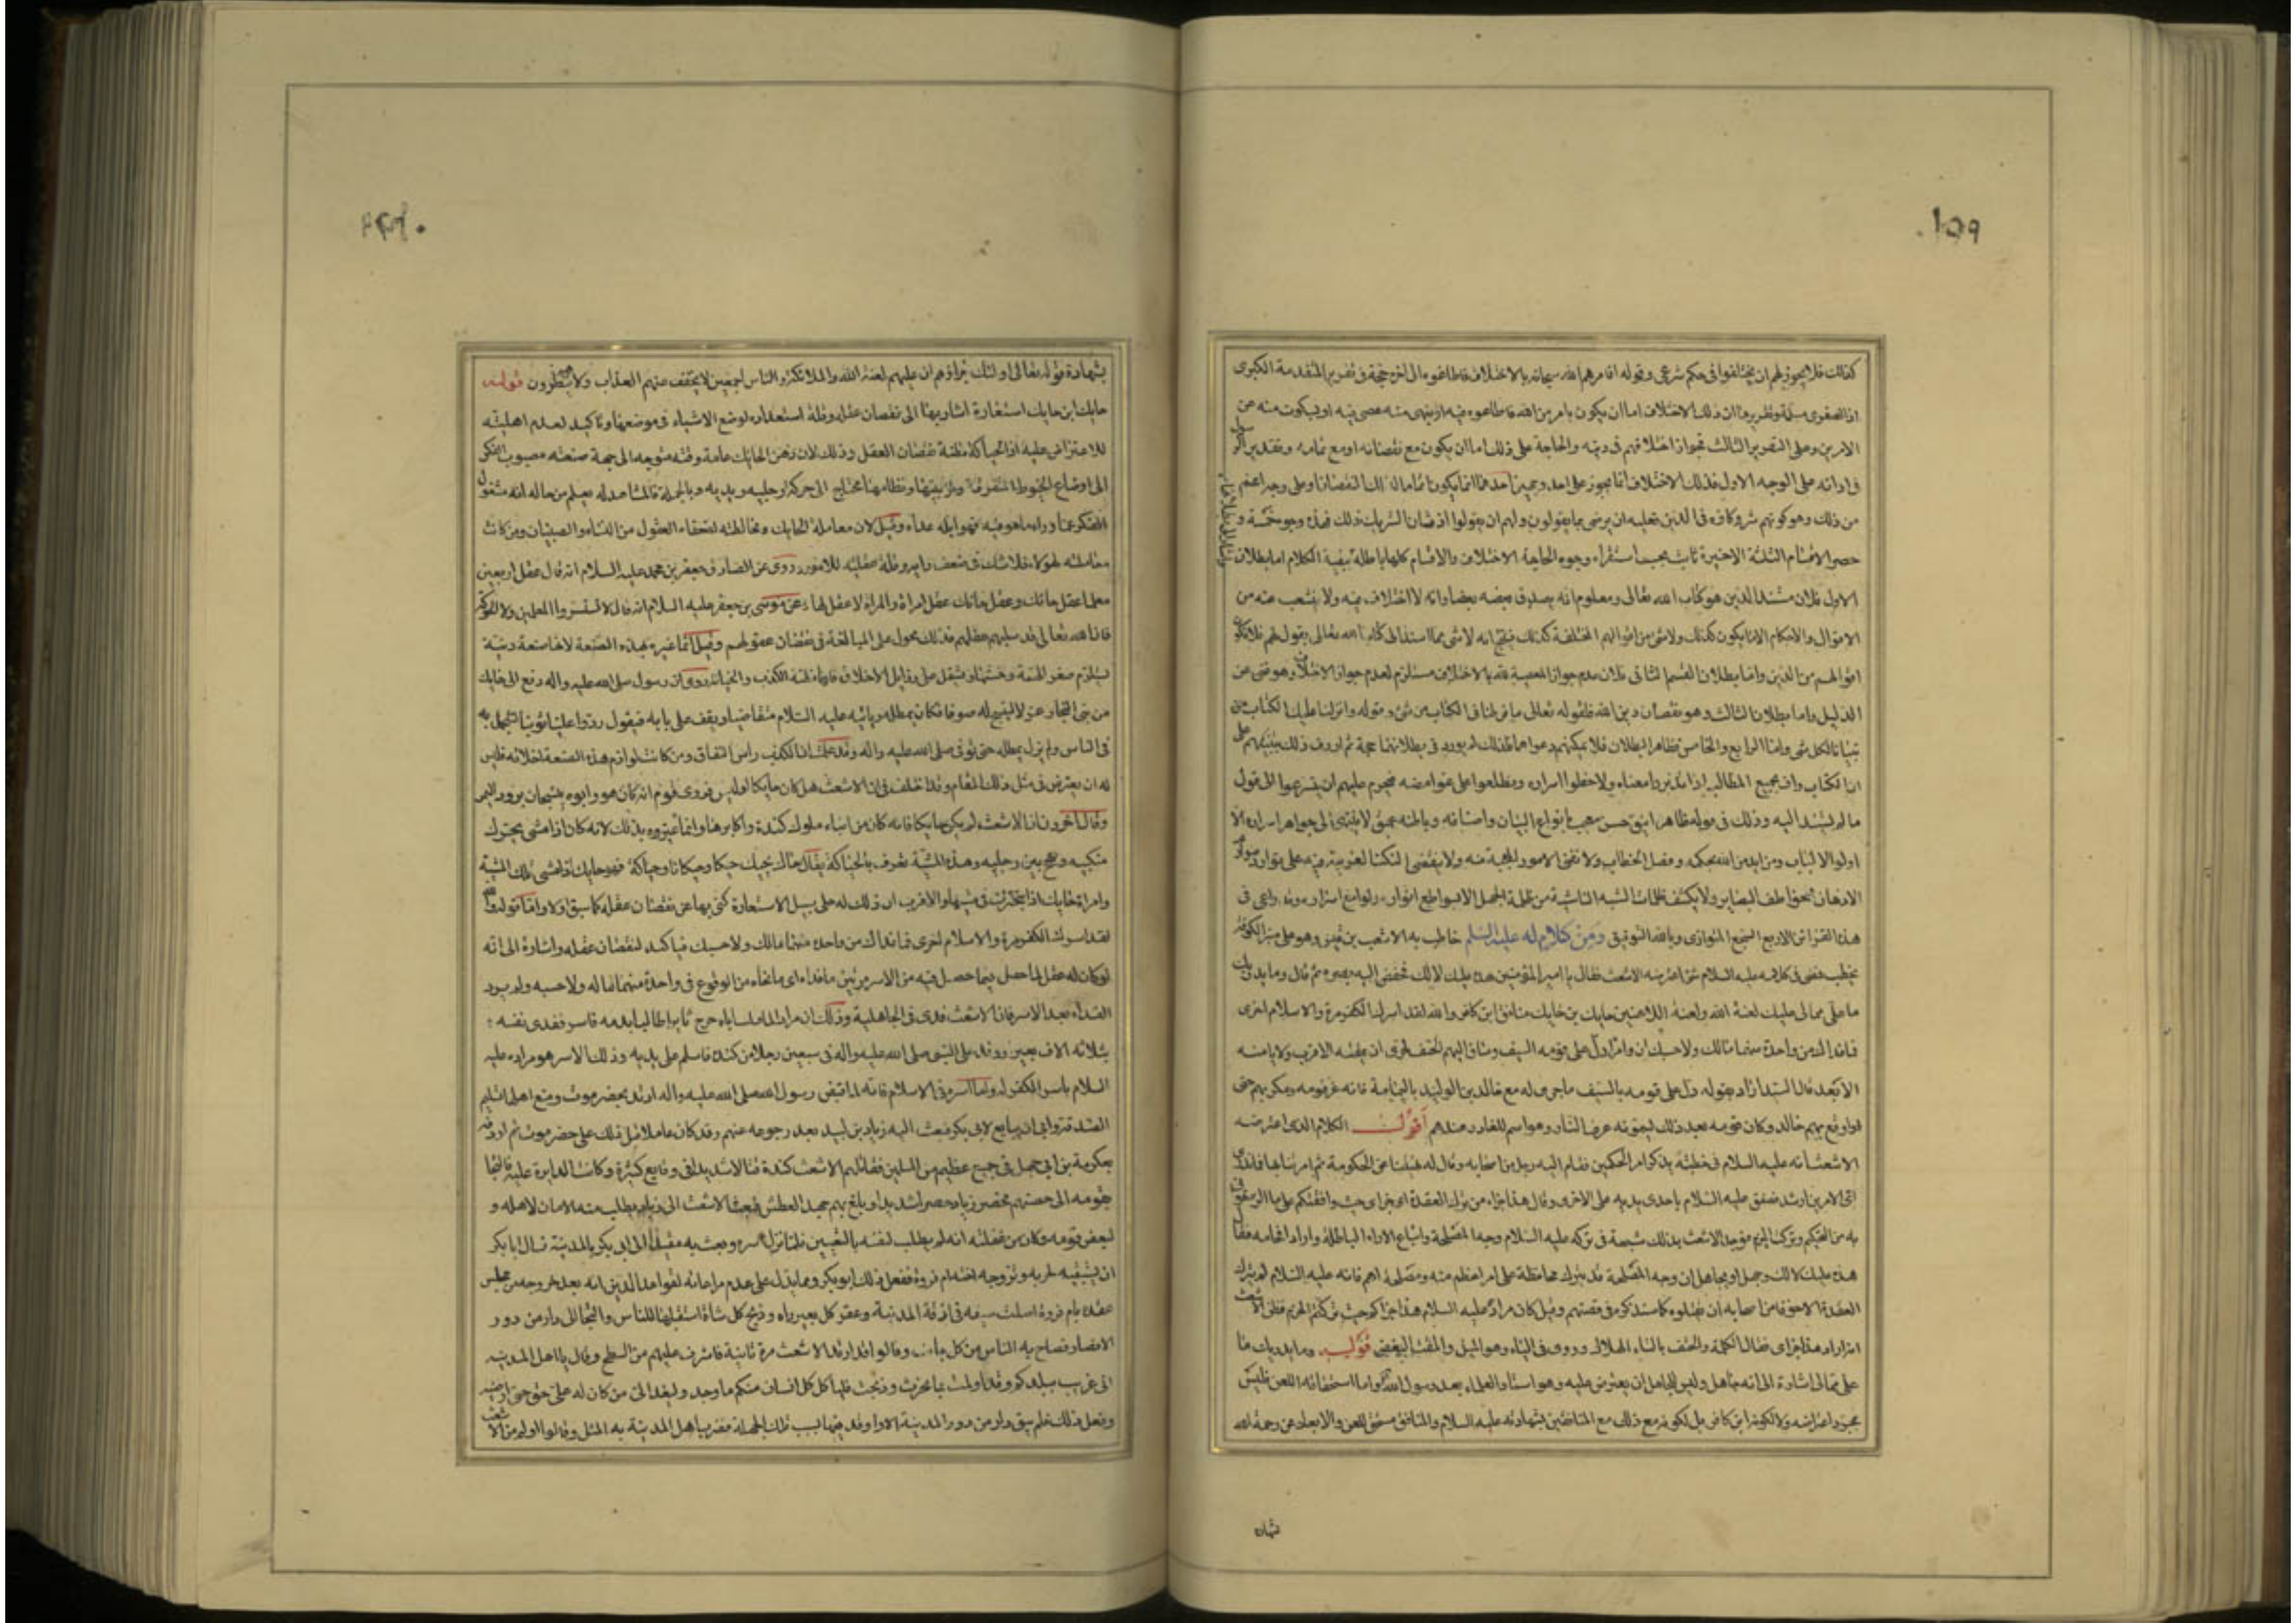 ١٥٩
كذلك فلا يجوز لهم ان يختلفوا فى حكم شرعى وقوله افامرهم الله سبحانه بالاختلاف فاطاعوه الى اخره حجة فى تقرير المقدمة الكبرى
اذ الصغرى مسلمة وتقريرها ان ذلك الاختلاف اما ان يكون بامر من الله فاطاعوه فيه او بنهى منه عصى فيه او بسكوت منه عن
الامرين وعلى التقدير الثالث فجواز اختلافهم فى دينه والحاجة على ذلك اما ان يكون مع نقصانه او مع تمامه وتقصير الرسول
فى ادائه على الوجه الاول فذلك الاختلاف انما يجوز على احد وجهين احدهما ان يكون اتماما لذلك النقصان او على وجه اعم
من ذلك وهو كونهم شركاؤه فى الدين فعليه ان يرضى بما يقولون ولهم ان يقولوا اذ شان الشريك ذلك فهذه وجوه خمسة و
حصر الاقسام الثلثة الاخيرة ثابت بحسب استقراء وجوه الحاجة الى الاختلاف والاقسام كلها باطلة بقية الكلام اما بطلان
الاول فلان مستند الدين هو كتاب الله تعالى ومعلوم انه يصدق بعضه بعضا وانه لا اختلاف فيه ولا يتشعب عنه من
الاقوال والاحكام الا ما يكون كذلك ولا شئ من اقوالهم المختلفة كذلك فينتج انه لا شئ مما استند الى كتاب الله تعالى بقول لهم فلا تكون
اقوالهم من الدين واما بطلان القسم الثانى فلان عدم جواز المعصية لله بالاختلاف مستلزم لعدم جواز الاختلاف وهو غنى عن
الدليل واما بطلان الثالث وهو نقصان دين الله فلقوله تعالى ما فرطنا فى الكتاب من شئ وقوله وانزلنا عليك الكتاب
تبيانا لكل شئ واما الرابع والخامس فظاهر البطلان فلا يمكنهم دعواهما فلذلك لم يورد فى بطلانهما حجة ثم اردف ذلك بتنبيههم على
ان الكتاب واف بجميع المطالب اذا تدبروا معناه ولاحظوا اسراره وتطلعوا على غوامضه فيحرم عليهم ان يتسرعوا الى قول
ما لم يستند اليه وذلك فى قوله ظاهره انيق حسن معجب بانواع البيان واصنافه وباطنه عميق لا ينتهى الى جواهر اسراره الا
اولوا الالباب ومن ايد من الله بحكمة وفصل الخطاب ولا تفنى الامور المعجبة منه ولا تنقضى النكت الغريبة فيه على توارد
الاذهان وخواطف البصاير ولا يكشف ظلمات الشبه الناشئة من ظلمة الجهل الا بسواطع انواره ولوامع اسراره وقد راعى فى
هذه القراين الاربع السجع المتوازى وبالله التوفيق ومن كلام له عليه السلم خاطب به الاشعث بن قيس وهو على منبر الكوفة
يخطب فمضى فى كلامه عليه السلام شئ اعترضه الاشعث فقال يا امير المؤمنين هذه عليك لا لك فخفض اليه بصره ثم قال وما يدريك
ما على مما لى عليك لعنة الله ولعنة اللاعنين حايك بن حايك منافق ابن كافر والله لقد اسرك الكفر مرة والاسلام اخرى
فما فداك من واحدة منهما مالك ولا حسبك ان وامرا دل على قومه السيف وساق اليهم الحتف لحرى ان يمقته الاقرب ولا يامنه
الابعد قال السيد اراد بقوله دل على قومه بالسيف ما جرى له مع خالد بن الوليد باليمامة فانه غر قومه ومكر بهم حتى
اوقع بهم خالد وكان قومه بعد ذلك يسمونه عرف النار وهو اسم للغادر عندهم اقول الكلام الذى اعترضه
الاشعث انه عليه السلام فى خطبته يذكر امر الحكمين فقام اليه رجل من اصحابه وقال له نهيتنا عن الحكومة ثم امرتنا بها فما ندرى
اى الامرين ارشد فصفق عليه السلام باحدى يديه على الاخرى وقال هذا جزاء من ترك العقدة اى جزاى حيث وافقتكم على ما الزمتمونى
به من التحكيم وترك الحزم فوجد الاشعث بذلك شبهة فى تركه عليه السلام وجه المصلحة واتباع الاراء الباطلة واراد افحامه فقال
هذه عليك لا لك وجهل او تجاهل ان وجه المصلحة قد يترك محافظة على امر اعظم منه ومصلحة اهم فانه عليه السلام لم يترك
العقدة الا خوفا من اصحابه ان يقتلوه كما سنذكره فى قصتهم وقيل كان مراده عليه السلام هذا جزاؤكم حيث تركتم الحزم فظن الاشعث
انه اراد هذا جزاى فقال الكلمة والحتف بالتاء الهلاك وروى فى الياء وهو الميل والمقت البغض قوله وما يدريك ما
على مما لى اشارة الى انه جاهل وليس للجاهل ان يعترض عليه وهو استاد العلماء بعد رسول الله واما استحقاقه اللعن فليس
بمجرد اعتراضه ولا لكونه ابن كافر بل لكونه مع ذلك من المنافقين بشهادته عليه السلام والمنافق مستحق للعن والابعاد عن رحمة الله
شهاده
بشهادة قوله تعالى اولئك جزاؤهم ان عليهم لعنة الله والملائكة والناس اجمعين لا يخفف عنهم العذاب ولا هم ينظرون قوله
حايك ابن حايك استعارة اشار بها الى نقصان عقله وقلة استعداده لوضع الاشياء فى موضعها وتاكيد لعدم اهليته
للاعتراض عليه اذ الحياكة مظنة نقصان العقل وذلك لان ذهن الحايك عامة وقته متوجه الى جهة صنعته مصبوب الفكر
الى اوضاع الخيوط المتفرقة وترتيبها ونظامها محتاج الى حركة رجليه ويديه وبالجملة فالمشاهد له يعلم من حاله انه مشغول
الفكر عما وراء ما هو فيه فهو ابله عداه وقيل لان معاملة الحايك ومخالطته لضعفاء العقول من النساء والصبيان ومن كانت
معاملته لهؤلاء فلا شك فى ضعف رايه وقلة عقليته للامور روى عن الصادق جعفر بن محمد عليه السلام انه قال عقل اربعين
معلما عقل حائك وعقل حائك عقل امراة والمراة لا عقل لها وعن موسى بن جعفر عليه السلام انه قال لا تستشيروا المعلمين ولا الحوكة
فان الله تعالى قد سلبهم عقلهم فذلك محمول على المبالغة فى نقصان عقولهم وقيل انما عيره بهذه الصنعة لانها صنعة دنية
تستلزم صغر الهمة وخستها وتشتمل على رذايل الاخلاق فانها مظنة الكذب والخيانة روى ان رسول صلى الله عليه واله دفع الى حايك
من بنى النجار غزلا لينسج له صوفا فكان يمطله وياتيه عليه السلام متقاضيا ويقف على بابه فيقول ردوا علينا ثوبنا لنتجمل به
فى الناس ولم يزل يمطله حتى توفى صلى الله عليه واله وقد علمت ان الكذب راس النفاق ومن كانت لوازم هذه الصنعة اخلاقه فليس
له ان يعترض فى مثل ذلك المقام وقد اختلف فى ان الاشعث هل كان حايكا او ليس فروى قوم انه كان هو وابوه ينسجان برود اليمن
وقال اخرون ان الاشعث لم يكن حايكا فانه كان من ابناء ملوك كندة واكابرها وانما عيره بذلك لانه كان اذا مشى يحرك
منكبيه ويفحج بين رجليه وهذه المشية تعرف بالحياكة يقال حاك يحيك حيكا وحيكانا وحياكة فهو حايك اذا مشى تلك المشية
وامراة حايك اذا تبخترت فى مشيها والاقرب ان ذلك له على سبيل الاستعارة كنى بها عن نقصان عقله كما سبق اولا واما قوله والله
لقد اسرك الكفر مرة والاسلام اخرى فما فداك من واحدة منهما مالك ولا حسبك فتاكيد لنقصان عقله واشارة الى انه
لو كان له عقل لما حصل فيما حصل فيه من الاسر مرتين ما فداه اى ما نجاه من الوقوع فى واحدة منهما ماله ولا حسبه ولم يرد
الفداء بعد الاسر فان الاشعث فدى فى الجاهلية وذلك ان مراد لما قتلت اباه خرج ثايرا طالبا بدمه فاسر ففدى نفسه
بثلاثة الاف بعير ووفد على النبى صلى الله عليه واله فى سبعين رجلا من كندة فاسلم على يديه وذلك الاسر هو مراده عليه
السلام باسر الكفر له واما اسره فى الاسلام فانه لما قبض رسول الله صلى الله عليه واله ارتد بحضرموت ومنع اهلها تسليم
الصدقة وابى ان يبايع لابى بكر فبعث اليه زياد بن لبيد بعد رجوعه عنهم وقد كان عاملا قبل ذلك على حضرموت ثم اردفه
بعكرمة بن ابى جهل فى جمع عظيم من المسلمين فقاتلهم الاشعث كندة قتالا شديدا فى وقايع كثيرة وكانت الدايرة عليه فالتجا
بقومه الى حصنهم فحصرهم زياد حصرا شديدا وبلغ بهم جهد العطش فبعث الاشعث الى زياد يطلب منه الامان لاهله و
لبعض قومه وكان من غفلته انه لم يطلب لنفسه بالتعيين فلما نزل اسره وبعث به مقيدا الى ابى بكر بالمدينة فسال ابا بكر
ان يستبقيه لحربه ويزوجه اخته ام فروة ففعل ذلك ابو بكر ومما يدل على عدم مراعاته لقواعد الدين انه بعد خروجه من مجلس
عقده بام فروة اصلت سيفه فى ازقة المدينة وعقر كل بعير راه وذبح كل شاة استقبلها للناس والتجا الى دار من دور
الانصار فصاح به الناس من كل جانب وقالوا قد ارتد الاشعث مرة ثانية فاشرف عليهم من السطح وقال يا اهل المدينة
انى غريب ببلدكم وقد اولمت بما نحرت وذبحت فليأكل كل انسان منكم ما وجد وليغد الى من كان له على حق حتى ارضيه
وفعل ذلك فلم يبق دار من دور المدينة الا وقد فيها بسبب تلك الجهلة فضرب اهل المدينة به المثل وقالوا اولم من الاشعث